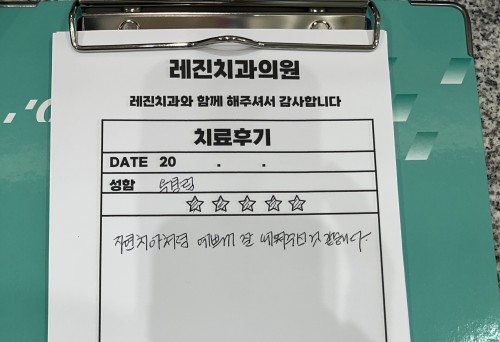 레진치과의원
레진치과와 함께 해주셔서 감사합니다
치료후기
DATE 20 . .
성함
☆☆☆☆☆
자연치아처럼 예쁘게 잘